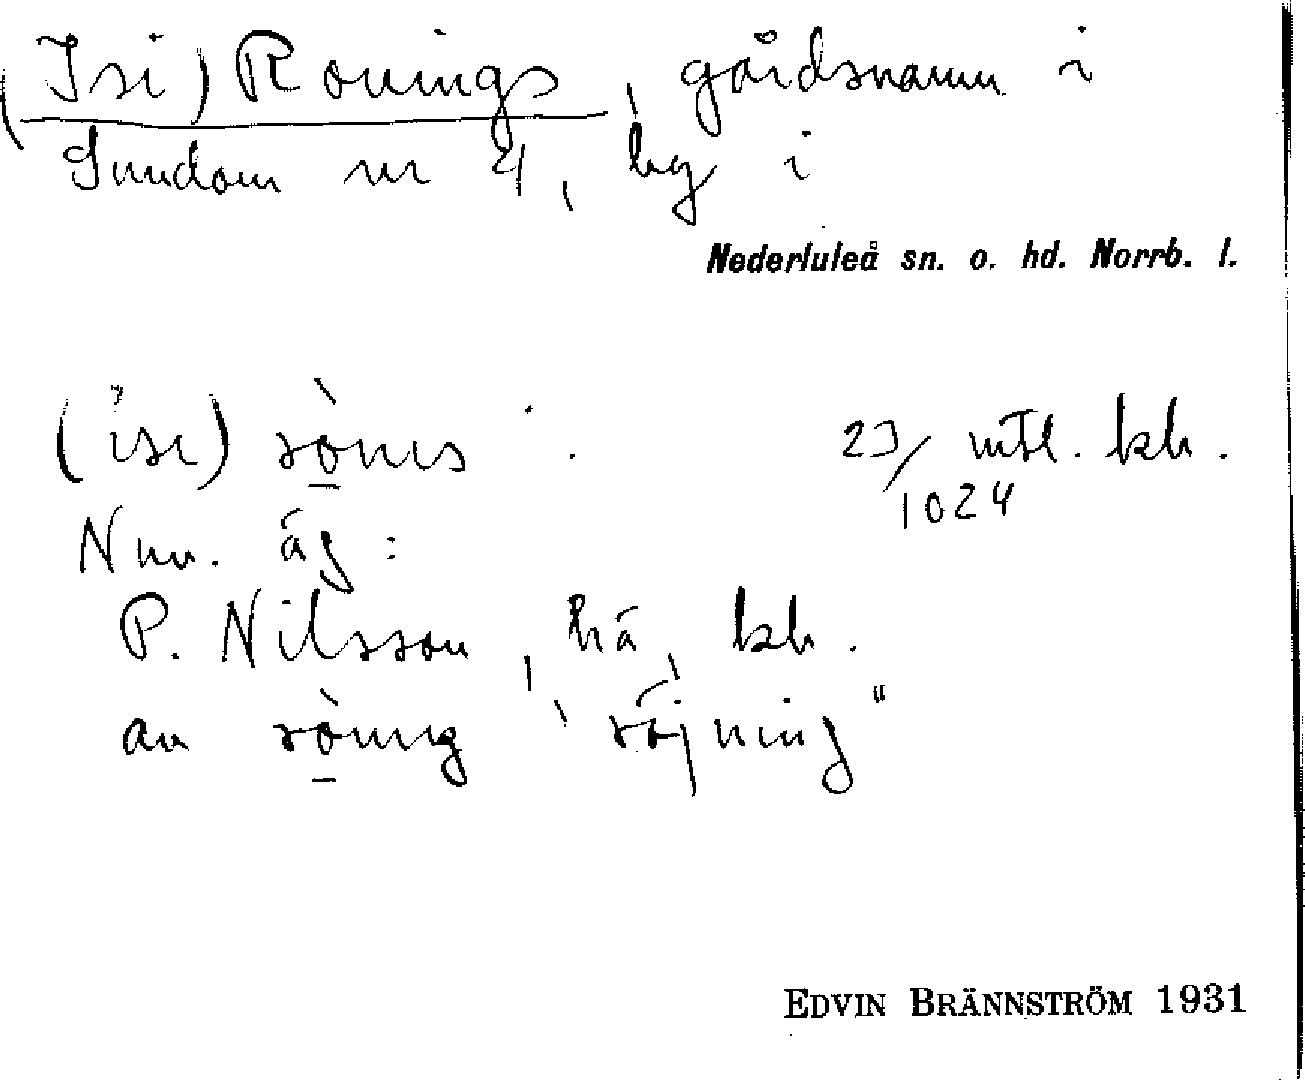 (Isi) Ronings, gårdsnamn i
Sundom nr 4, by i
Nederluleå sn. o. hd. Norrb. l.
(ìsı) rònıs . 23/1024 mtl. kh.
Nuv. äg:
P. Nilsson, hä, kh.
av ròning "röjning"
EDVIN BRÄNNSTRÖM 1931